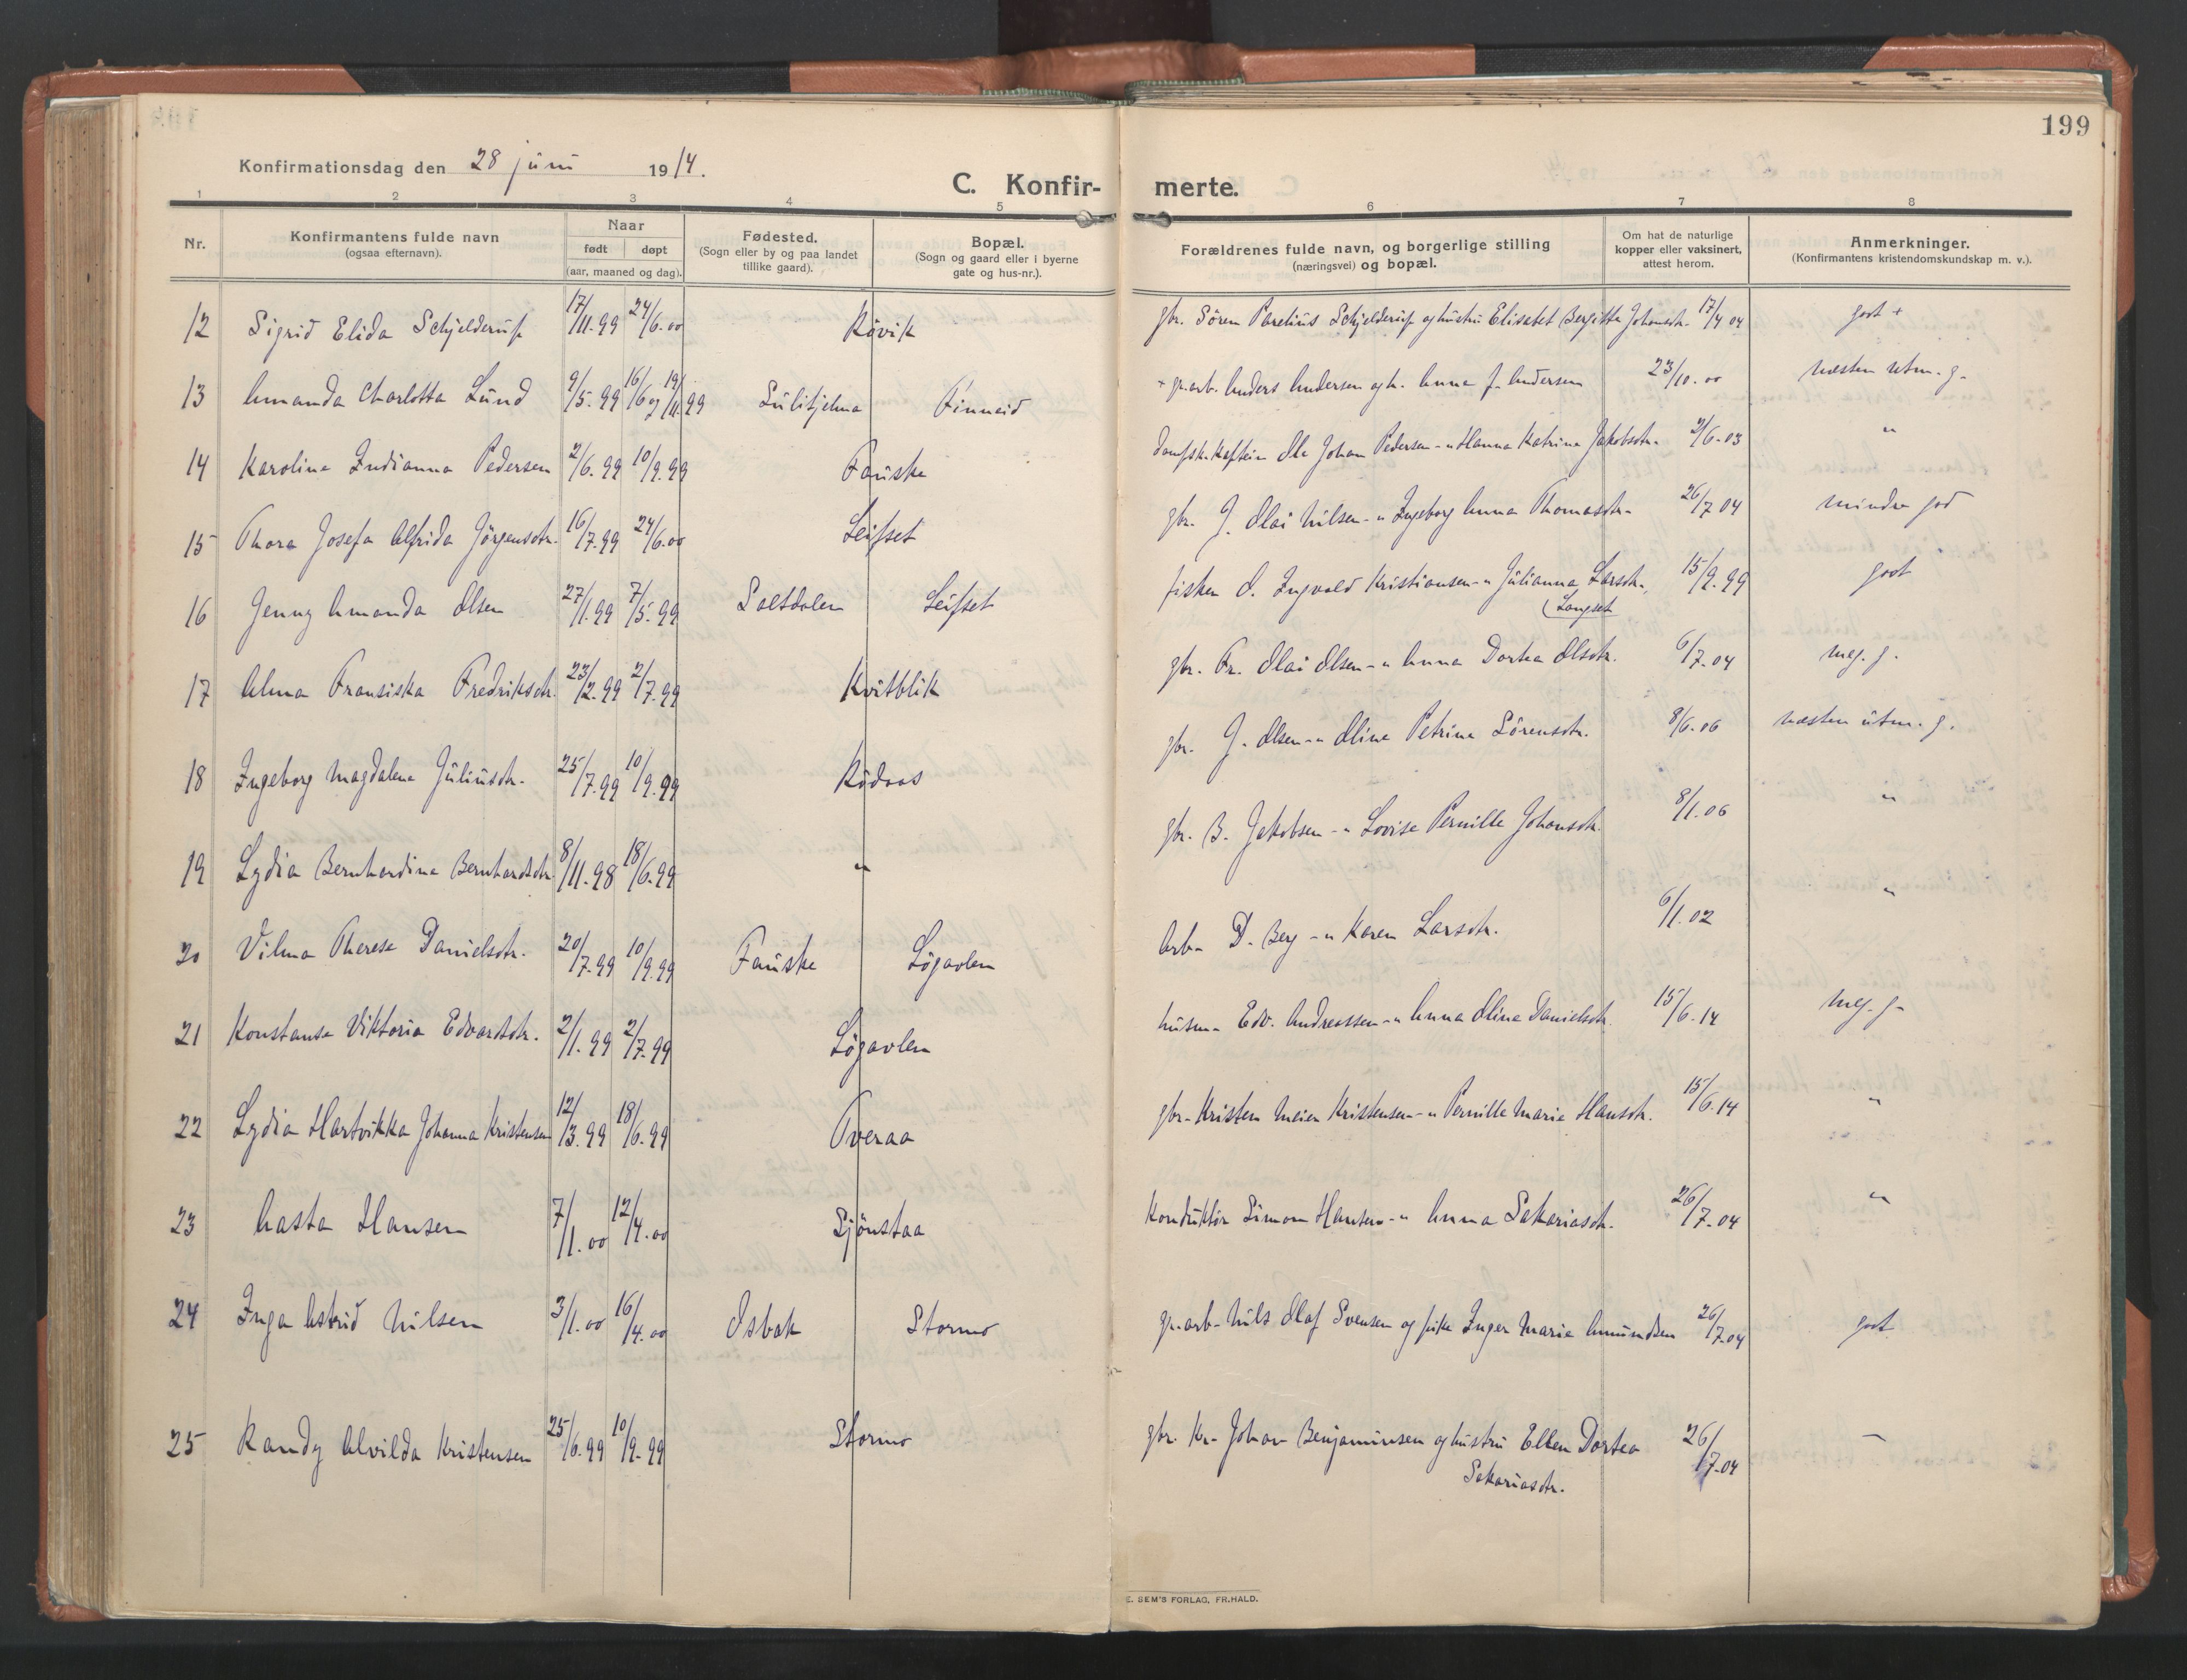 199
Konfirmationsdag den 28 juni 1914.
C. Konfir- merte.
1 2 3 4 5 6 7 8
Nr.
Konfirmantens fulde navn
(ogsaa efternavn).
Naar
født døpt
(aar, maaned og dag).
Fødested.
(Sogn eller by og paa landet
tillike gaard).
Bopæl.
(Sogn og gaard eller i byerne
gate og hus-nr.).
Forældrenes fulde navn, og borgerlige stilling
(næringsvei) og bopæl.
Om hat de naturlige
kopper eller vaksinert,
attest herom.
Anmerkninger.
(Konfirmantens kristendomskundskap m. v.).
12 Sigrid Elida Schjelderup 17/11.99 24/6.00 Røvik gbr. Sören Parelius Schjelderup og hustru Elisabet Bergitte Johansdtr. 17/4 04 godt +
13 Amanda Charlotta Lund 9/5.99 16/6 og 19/11.99 Sulitjelma Finneid + gr.arb. Anders Andersen og h. Anna J. Andersen 23/10.00 næsten utm. g.
14 Karoline Indianna Pedersen 2/6.99 10/9.99 Fauske dampsk. kaptein Ole Johan Pedersen - " Hanna Katrine Jakobsdtr. 2/6.03 "
15 Thora Josefa Alfrida Jörgensdtr. 16/7.99 24/6.00 Leifset gbr. J. Olai Nilsen - " Ingeborg Anna Thomasdtr. 26/7 04 mindre god
16 Jenny Amanda Olsen 27/1.99 7/5.99 Saltdalen Leifset fisker O. Ingvald Kristiansen - " Julianna Larsdtr., 15/9.99 godt
(Langset
17 Alma Fransiska Fredriksdtr. 23/2.99 2/7.99 Kvitblik gbr. Fr. Olai Olsen - " Anna Dortea Olsdtr. 6/7.04 meg. g.
18 Ingeborg Magdalena Juliusdtr. 25/7.99 10/9.99 Rødaas gbr. J. Olsen - " Oline Petrine Sörensdtr. 8/6.06 næsten utm. g.
19 Lydia Bernhardina Bernhardsdtr. 8/11.98 18/6.99 " gbr. B. Jakobsen - " Lovise Pernille Johansdtr. 8/1.06 "
20 Vilma Therese Danielsdtr. 20/7.99 10/9.99 Fauske Løgavlen Arb. D. Berg - " Karen Larsdtr. 6/1.02 "
21 Konstanse Viktoria Edvardsdtr. 2/1.99 2/7.99 Løgavlen husm. Edv. Andreassen - " Anna Oline Danielsdtr. 15/6.14 meg. g.
22 Lydia Hartvikka Johanna Kristensen 12/3.99 18/6.99 Tveraa gbr. Kristen Meier Kristensen - " Pernille Marie Hansdtr. 15/6.14 "
23 Aasta Hansen 7/1.00 12/4.00 Sjönstaa Konduktör Simon Hansen - " Anna Sakariasdtr. 26/7.04 "
24 Inga Astrid Nilsen 3/1.00 16/4.00 Isbak Stormo gr.arb. Nils Olaf Svensen og pike Inger Marie Amundsen 26/7.04 godt
25 Randy Alvilda Kristensen 25/6.99 10/9.99 Stormo gbr. Kr. Johan Benjaminsen og hustru Ellen Dortea 26/7.04 —
Sakariasdtr.
E. SEM'S FORLAG, FR.HALD.